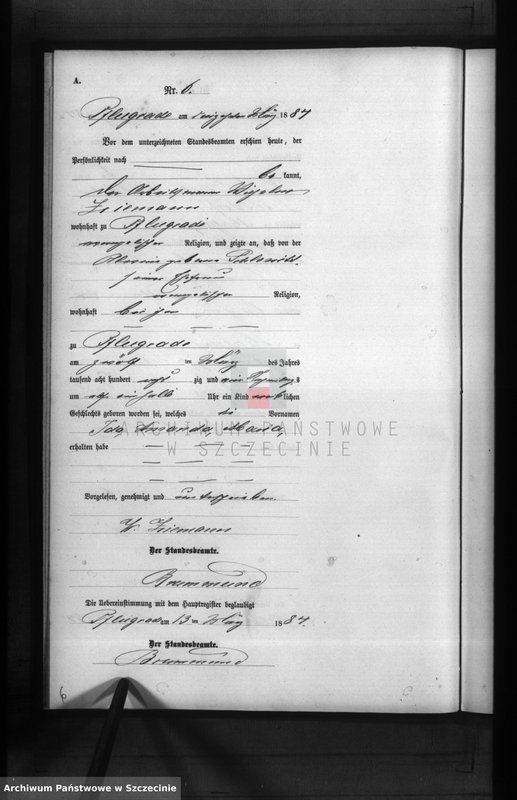 A.
Nr. 6.
Pflugrade am dreizehnten März 1884
Vor dem unterzeichneten Standesbeamten erschien heute, der
Persönlichkeit nach
be kannt,
der Arbeitsmann Wilhelm
Ziemann
wohnhaft zu Pflugrade
evangelischer Religion, und zeigte an, daß von der
geborne
seiner Ehefrau
evangelischer Religion,
wohnhaft bei ihm
zu Pflugrade
am zwölf ten März des Jahres
tausend acht hundert acht zig und vier Vormittags
um elf einhalb Uhr ein Kind weiblichen
Geschlechts geboren worden sei, welches die Vornamen
Ida, Amanda, Maria,
erhalten habe
ARCHIWUM PAŃSTWOWE
W SZCZECINIE
Vorgelesen, genehmigt und unterschrieben.
W. Ziemann
Der Standesbeamte.
Brummund
Die Uebereinstimmung mit dem Hauptregister beglaubigt
Pflugrade am 13 ten März 1884.
Der Standesbeamte.
Brummund
6
Archiwum Państwowe w Szczecinie